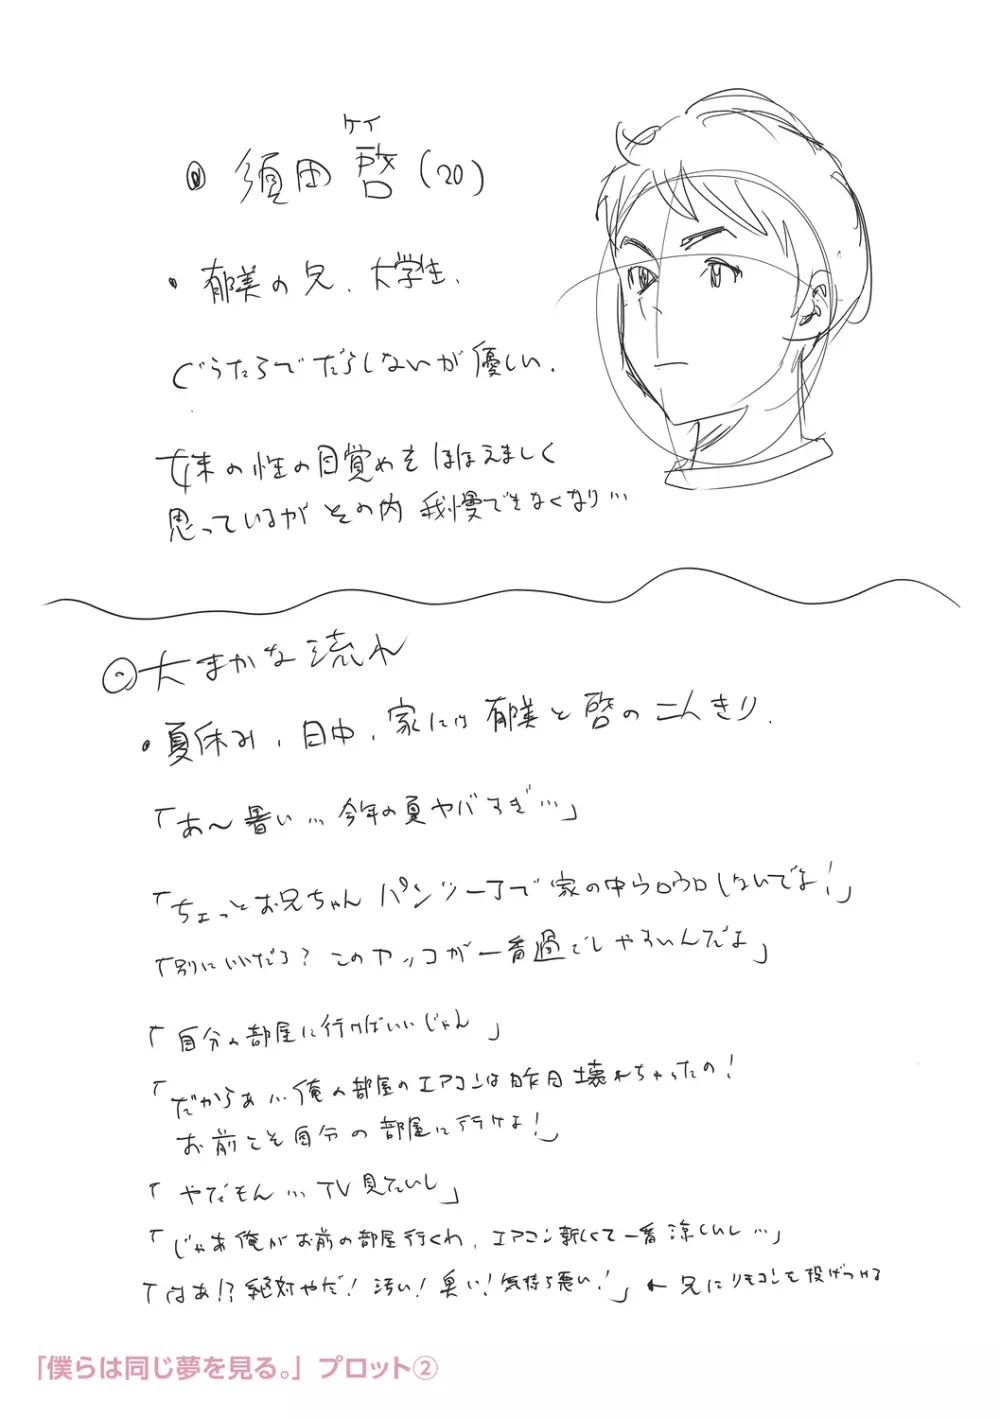 ケイ
須田 啓(20)
・郁美の兄、大学生、
ぐうたらでだらしないが優しい、
妹の性の目覚めをほほえましく
思っているがその内我慢できなくなり…
◎大まかな流れ
・夏休み、日中、家には郁美と啓の二人きり、
「あ〜暑い…今年の夏ヤバすぎ…」
「ちょっとお兄ちゃんパンツ一丁で家の中ウロウロしないでよ!」
「別にいいだろ?このカッコが一番過ごしやすいんだよ」
「自分の部屋に行けばいいじゃん」
「だからぁ…俺の部屋のエアコンは昨日壊れちゃったの!
お前こそ自分の部屋に行けよ!」
「やだもん…TV見たいし」
「じゃあ俺がお前の部屋行くわ、エアコン新しくて一番涼しいし…」
「はあ!?絶対やだ!汚い!臭い!気持ち悪い!」←兄にリモコンを投げつける
「僕らは同じ夢を見る。」プロット②